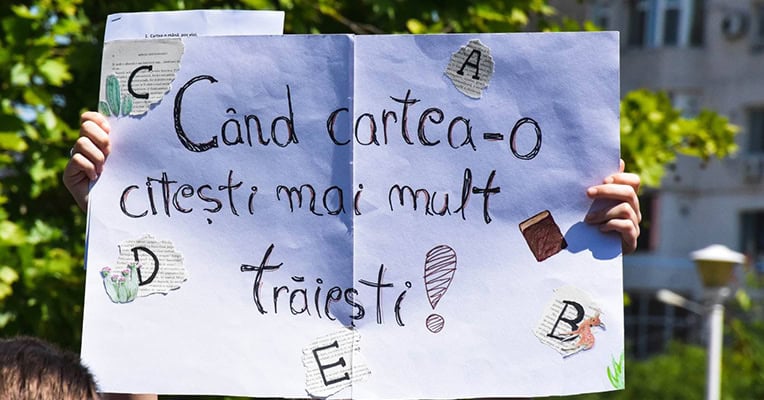 C
A
Când cartea-o
citești mai mult
D
trăiești!
B
E